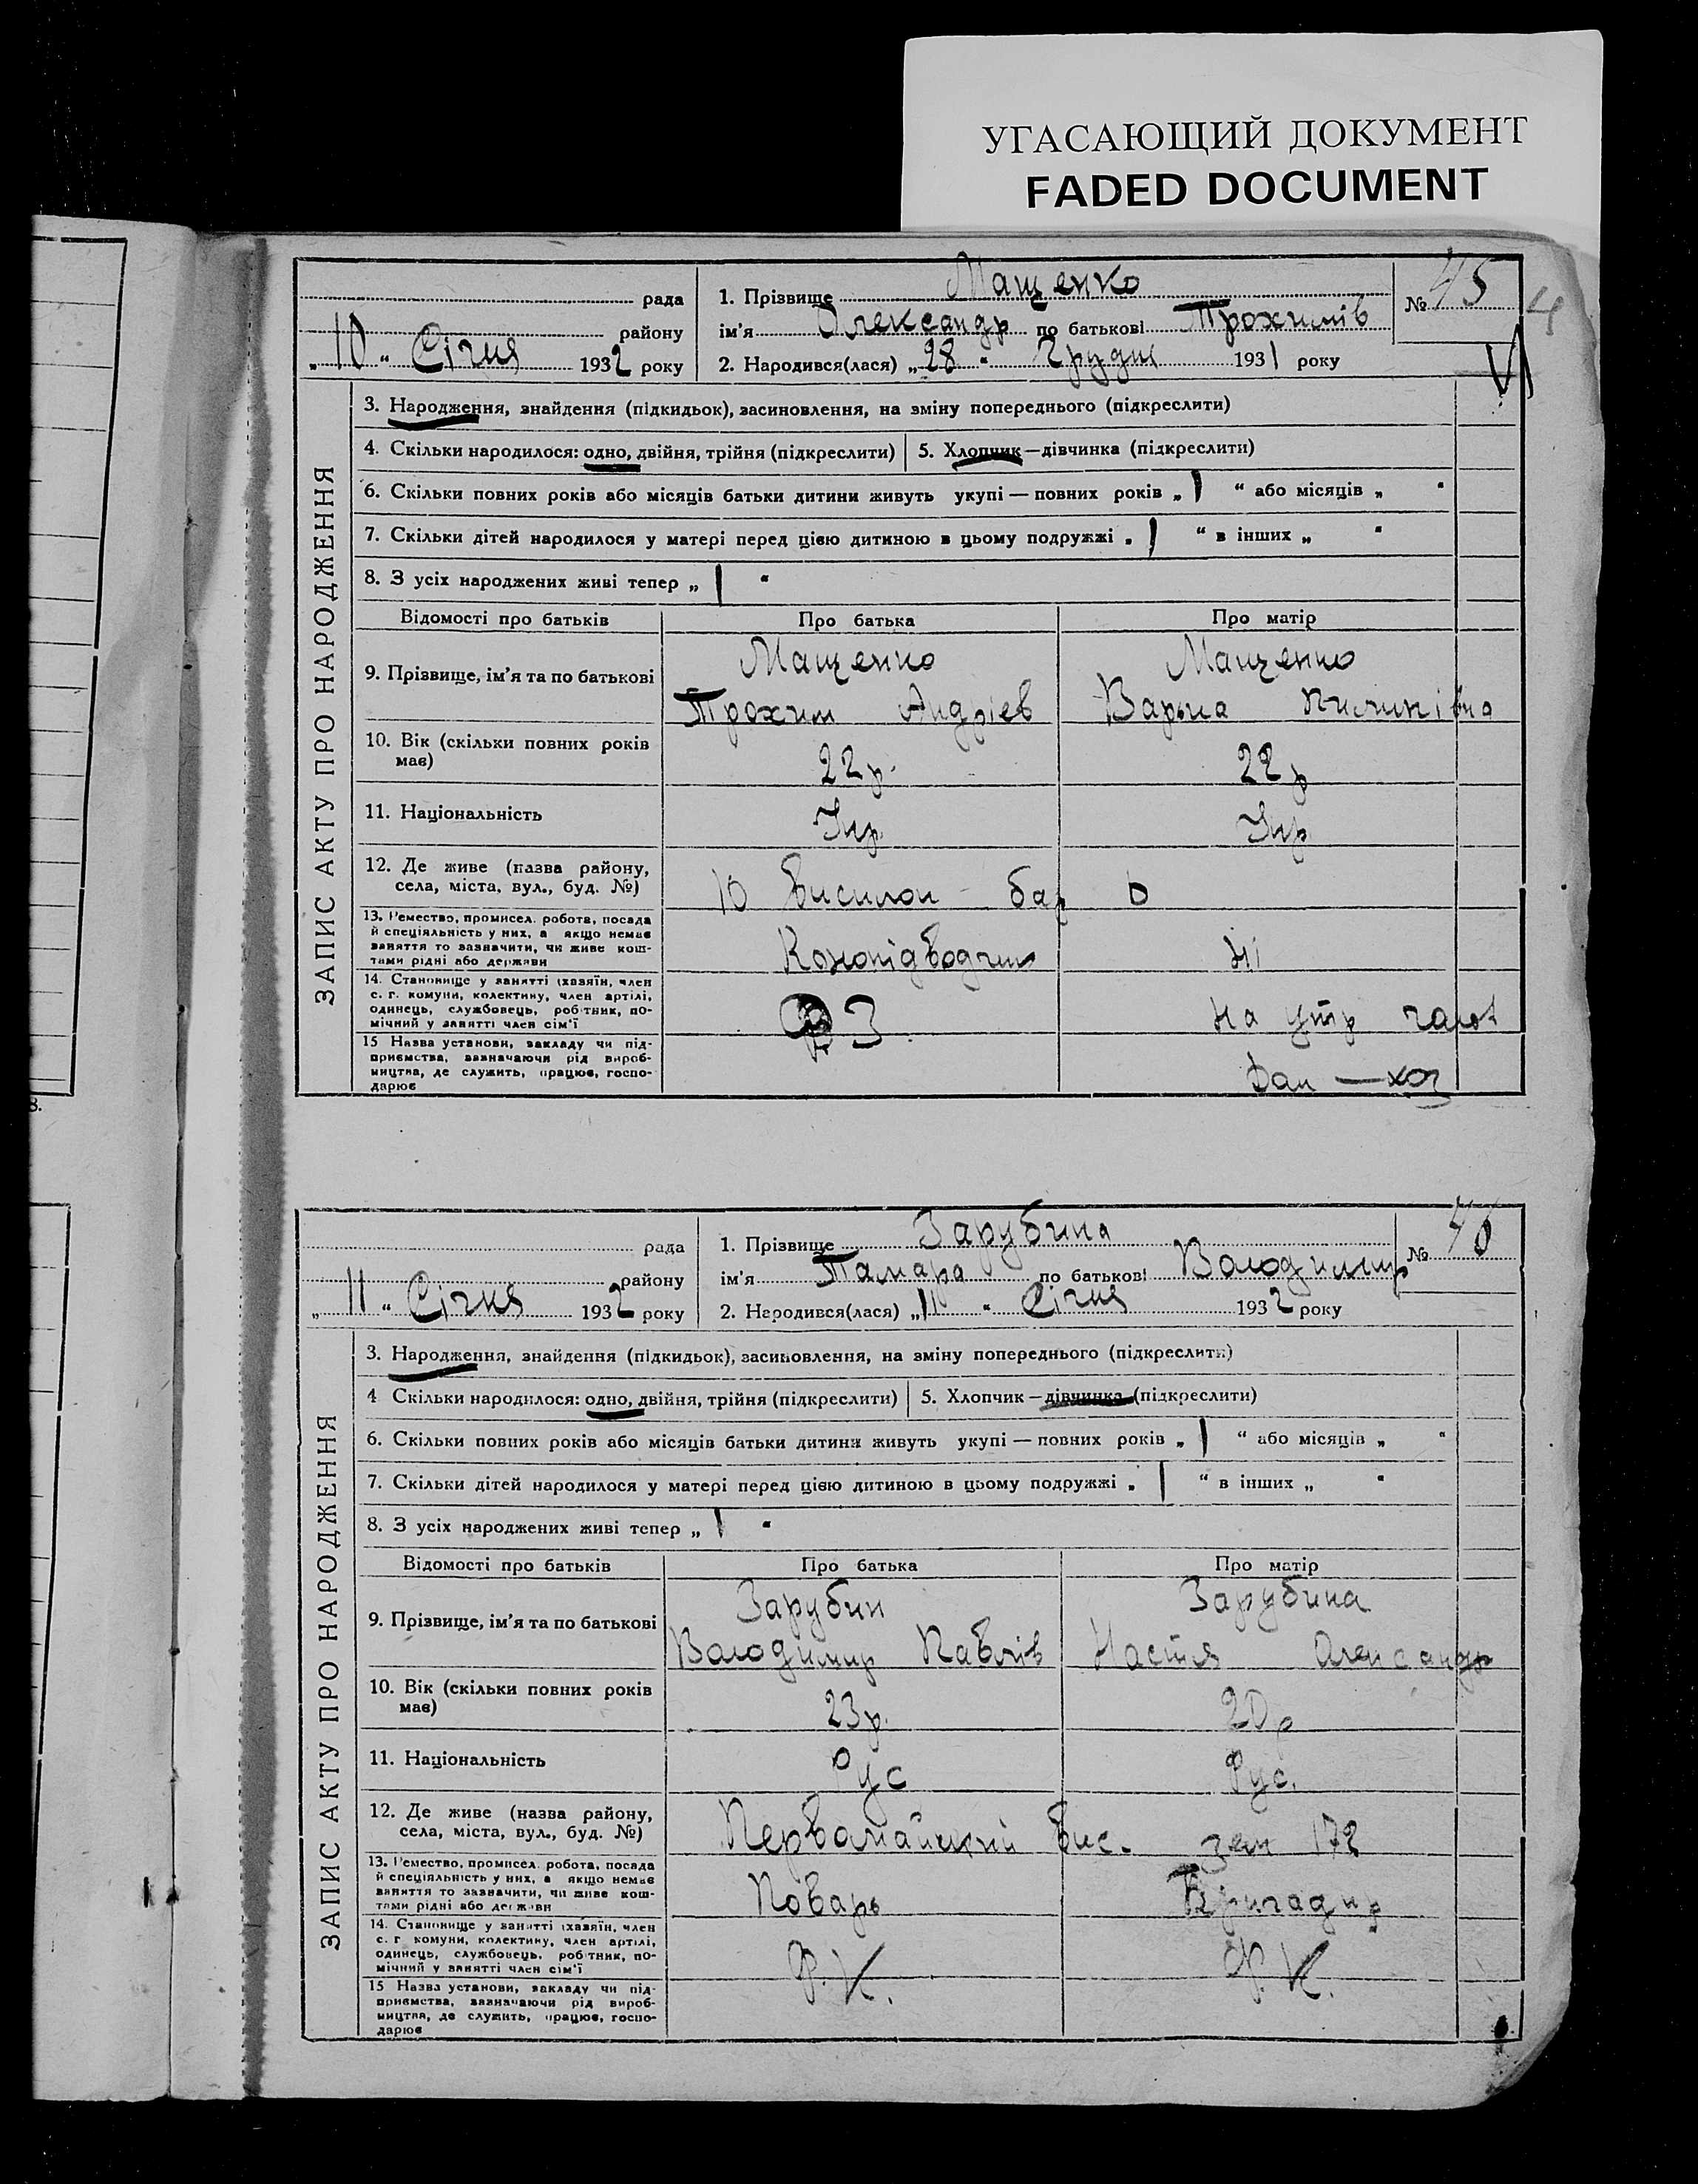 УГАСАЮЩИЙ ДОКУМЕНТ
FADED DOCUMENT
ЗАПИС АКТУ ПРО НАРОДЖЕННЯ
рада
району
„10“ Січня 1932 року
1. Прізвище Мащенко
ім'я Олександр по батькові Трохимів
2. Народився(лася) „28“ Грудня 1931 року
№ 45
3. Народження, знайдення (підкидьок), засиновлення, на зміну попереднього (підкреслити)
4. Скільки народилося: одно, двійня, трійня (підкреслити) 5. Хлопчик—дівчинка (підкреслити)
6. Скільки повних років або місяців батьки дитини живуть укупі — повних років „1“ або місяців „ “
7. Скільки дітей народилося у матері перед цією дитиною в цьому подружжі „1“ в інших „ “
8. З усіх народжених живі тепер „1“
Відомості про батьків Про батька Про матір
9. Прізвище, ім'я та по батькові
Мащенко Мащенко
Трохим Андріев Варька
10. Вік (скільки повних років має) 22р. 22р
11. Національність Укр. Укр
12. Де живе (назва району, села, міста, вул., буд. №) 10 бар
13. Ремество, промисел, робота, посада й спеціяльність у них, а якщо немає заняття то зазначити, чи живе коштами рідні або держави
Ні
14. Становище у занятті (хазяїн, член с. г. комуни, колективу, член артілі, одинець, службовець, робітник, помічний у занятті член сім'ї
на утр
15 Назва установи, закладу чи підприємства, зазначаючи рід виробництва, де служить, працює, господарює
ЗАПИС АКТУ ПРО НАРОДЖЕННЯ
рада
району
„11“ Січня 1932 року
1. Прізвище Зарубина
ім'я Тамара по батькові Володимир
2. Народився(лася) „11“ Січня 1932 року
№ 46
3. Народження, знайдення (підкидьок), засиновлення, на зміну попереднього (підкреслити)
4 Скільки народилося: одно, двійня, трійня (підкреслити) 5. Хлопчик—дівчинка (підкреслити)
6. Скільки повних років або місяців батьки дитини живуть укупі — повних років „1“ або місяців „ “
7. Скільки дітей народилося у матері перед цією дитиною в цьому подружжі „1“ в інших „ “
8. З усіх народжених живі тепер „1“
Відомості про батьків Про батька Про матір
9. Прізвище, ім'я та по батькові
Зарубин Зарубина
Володимир Павлів Настя Александр
10. Вік (скільки повних років має) 23р. 20р
11. Національність Рус Рус.
12. Де живе (назва району, села, міста, вул., буд. №) Первомайский вис. зем 172
13. Ремество, промисел, робота, посада й спеціяльність у них, а якщо немає заняття то зазначити, чи живе коштами рідні або держави
Поварь Бригадир
14. Становище у занятті (хазяїн, член с. г. комуни, колективу, член артілі, одинець, службовець, робітник, помічний у занятті член сім'ї
Р.К. Р.К.
15 Назва установи, закладу чи підприємства, зазначаючи рід виробництва, де служить, працює, господарює